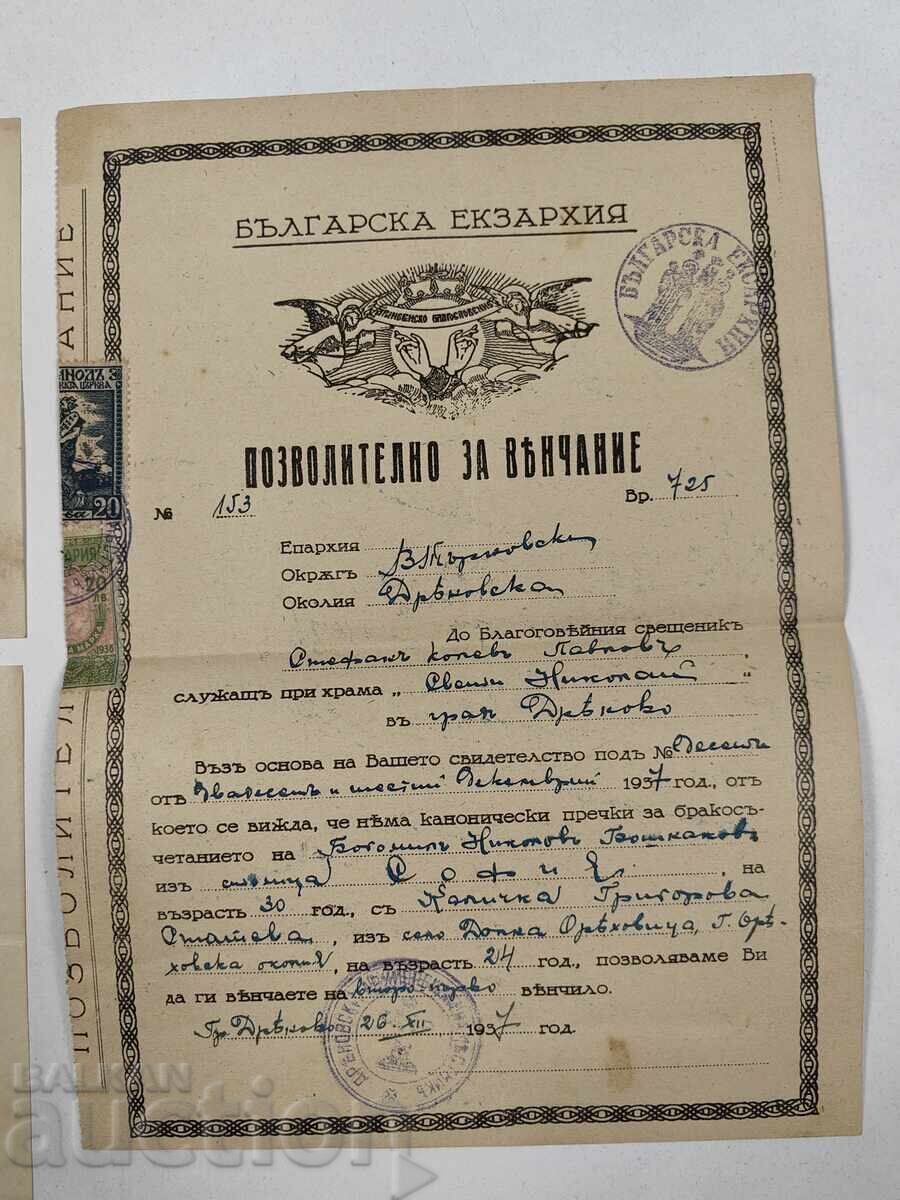 БЪЛГАРСКА ЕКЗАРХИЯ
БЪЛГАРСКА ЕКСАРХИЯ
ПОЗВОЛИТЕЛНО ЗА ВѢНЧАНИЕ
№ 153 Бр. 725
Епархия
Окрѫгъ В Търновски
Околия Дрѣновска
До Благоговѣйния свещеникъ
Стефанъ Колевъ Павловъ
служащъ при храма „Свети Николай“
въ град Дрѣново
Възъ основа на Вашето свидетелство подъ № Десети
отъ двадесет и шестий Декемврий 1937 год., отъ
което се вижда, че нѣма канонически пречки за бракосъ-
четанието на Богомилъ Николовъ
изъ столица София, на
възрасть 30 год., съ Каличка Григорова
Статева, изъ село Долна Орѣховица, Г. Орѣ-
ховска околия, на възрасть 24 год., позволяваме Ви
да ги вѣнчаете на второ-първо вѣнчило.
Гр. Дрѣново 26. XII 1937 год.
20
20 лв.
1938
ПОЗВОЛИТЕЛ
АНИЕ
BALKAN
auction